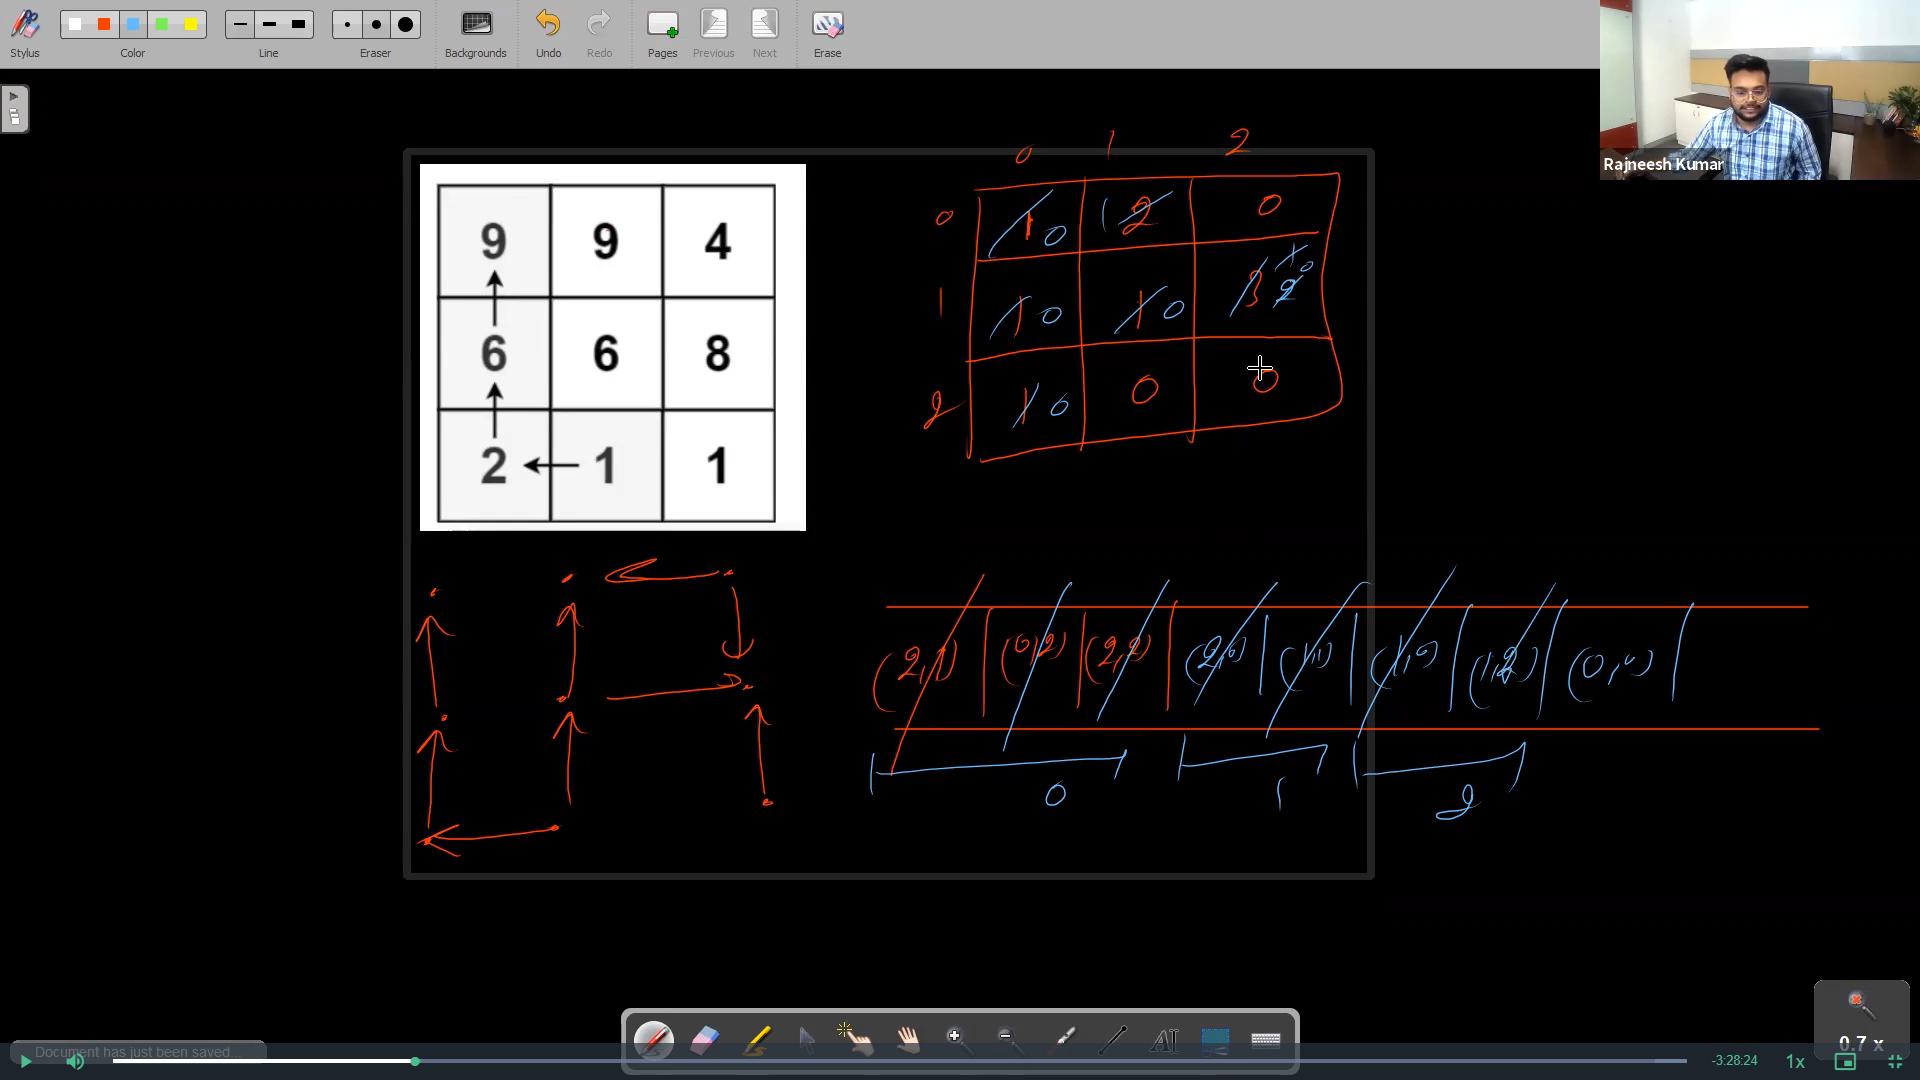 Stylus Color Line Eraser Backgrounds Undo Redo Pages Previous Next Erase
Rajneesh Kumar
9 9 4
6 6 8
2 1 1
0 1 2
0 1 0 1 2 0
1 1 0 1 0 3 2 1 0
2 1 0 0 0
(2,1) (0,2) (2,2) (2,0) (1,1) (1,0) (1,2) (0,0)
0 1 2
0.7 x
Document has just been saved...
-3:28:24 1x